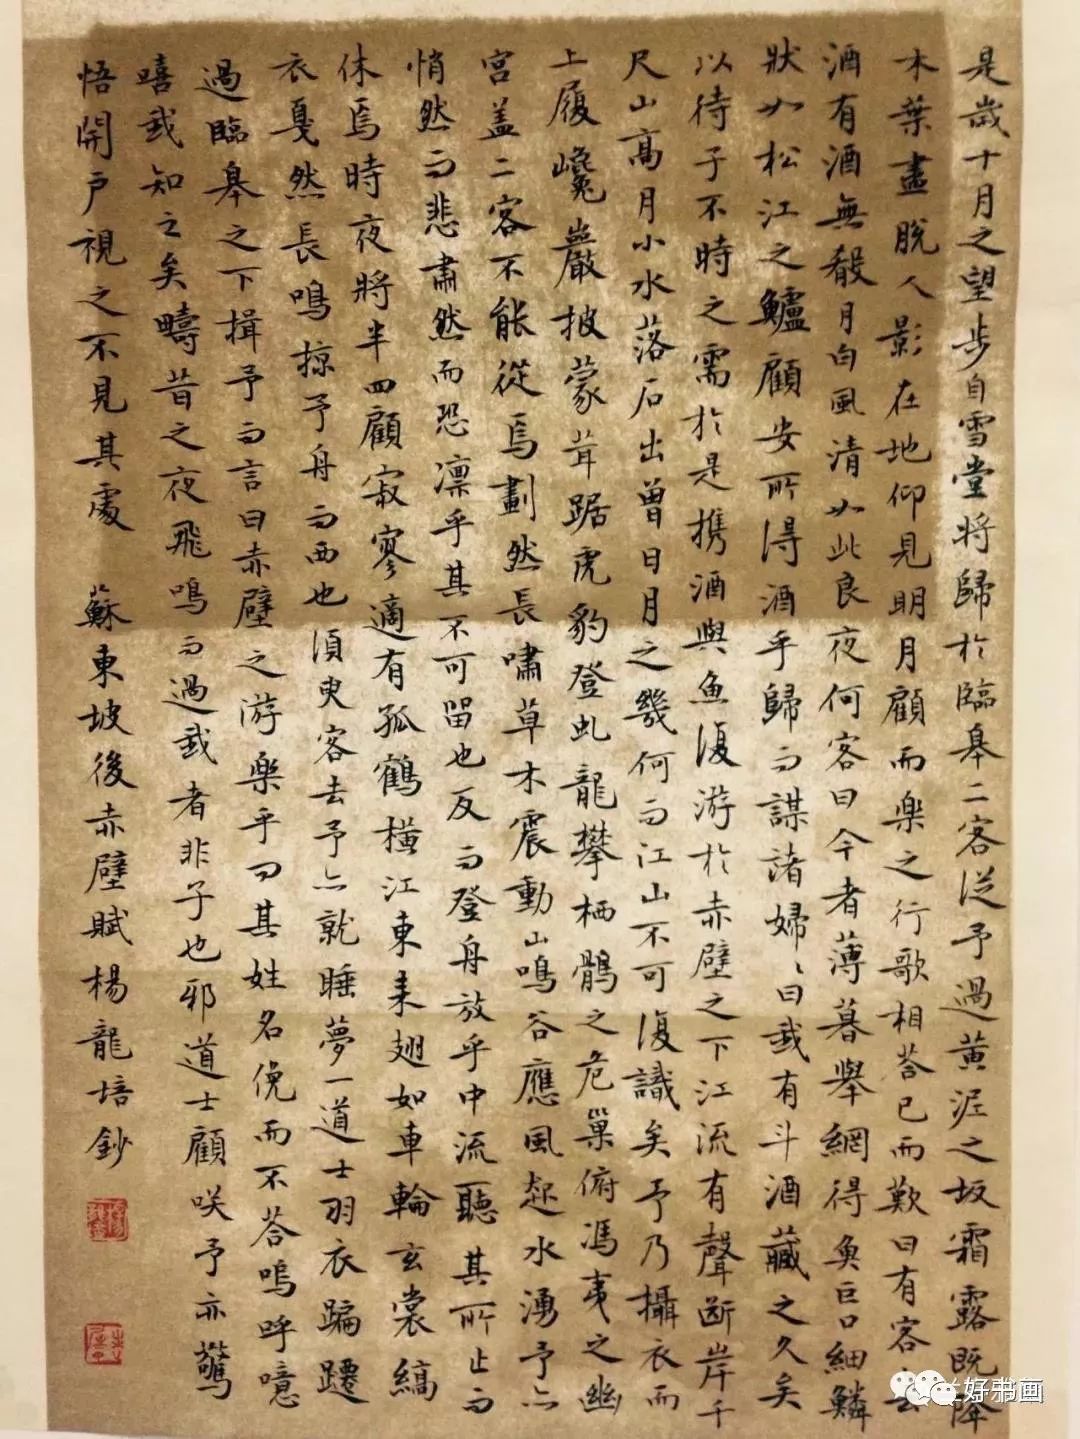 是歲十月之望步自雪堂將歸於臨皋二客從予過黃泥之坂霜露既降
木葉盡脫人影在地仰見明月顧而樂之行歌相荅已而歎曰有客
酒有酒無殽月白風清如此良夜何客曰今者薄暮舉網得魚巨口細鱗
狀如松江之鱸顧安所得酒乎歸而謀諸婦、曰我有斗酒藏之久矣
以待子不時之需於是携酒與魚復游於赤壁之下江流有聲断岸千
尺山高月小水落石出曾日月之幾何而江山不可復識矣予乃攝衣而
上履巉巖披蒙茸踞虎豹登虬龍攀栖鶻之危巢俯馮夷之幽
宮盖二客不能從焉劃然長嘯草木震動山鳴谷應風起水湧予亦
悄然而悲肅然而恐凛乎其不可留也反而登舟放乎中流聽其所止而
休焉時夜將半四顧寂寥適有孤鶴橫江東来翅如車輪玄裳縞
衣戛然長鳴掠予舟而西也須臾客去予亦就睡夢一道士羽衣蹁躚
過臨皋之下揖予而言曰赤壁之游樂乎問其姓名俛而不荅嗚呼噫
嘻我知之矣疇昔之夜飛鳴而過我者非子也邪道士顧咲予亦驚
悟開戶視之不見其處 蘇東坡後赤壁賦楊龍培鈔
好书画